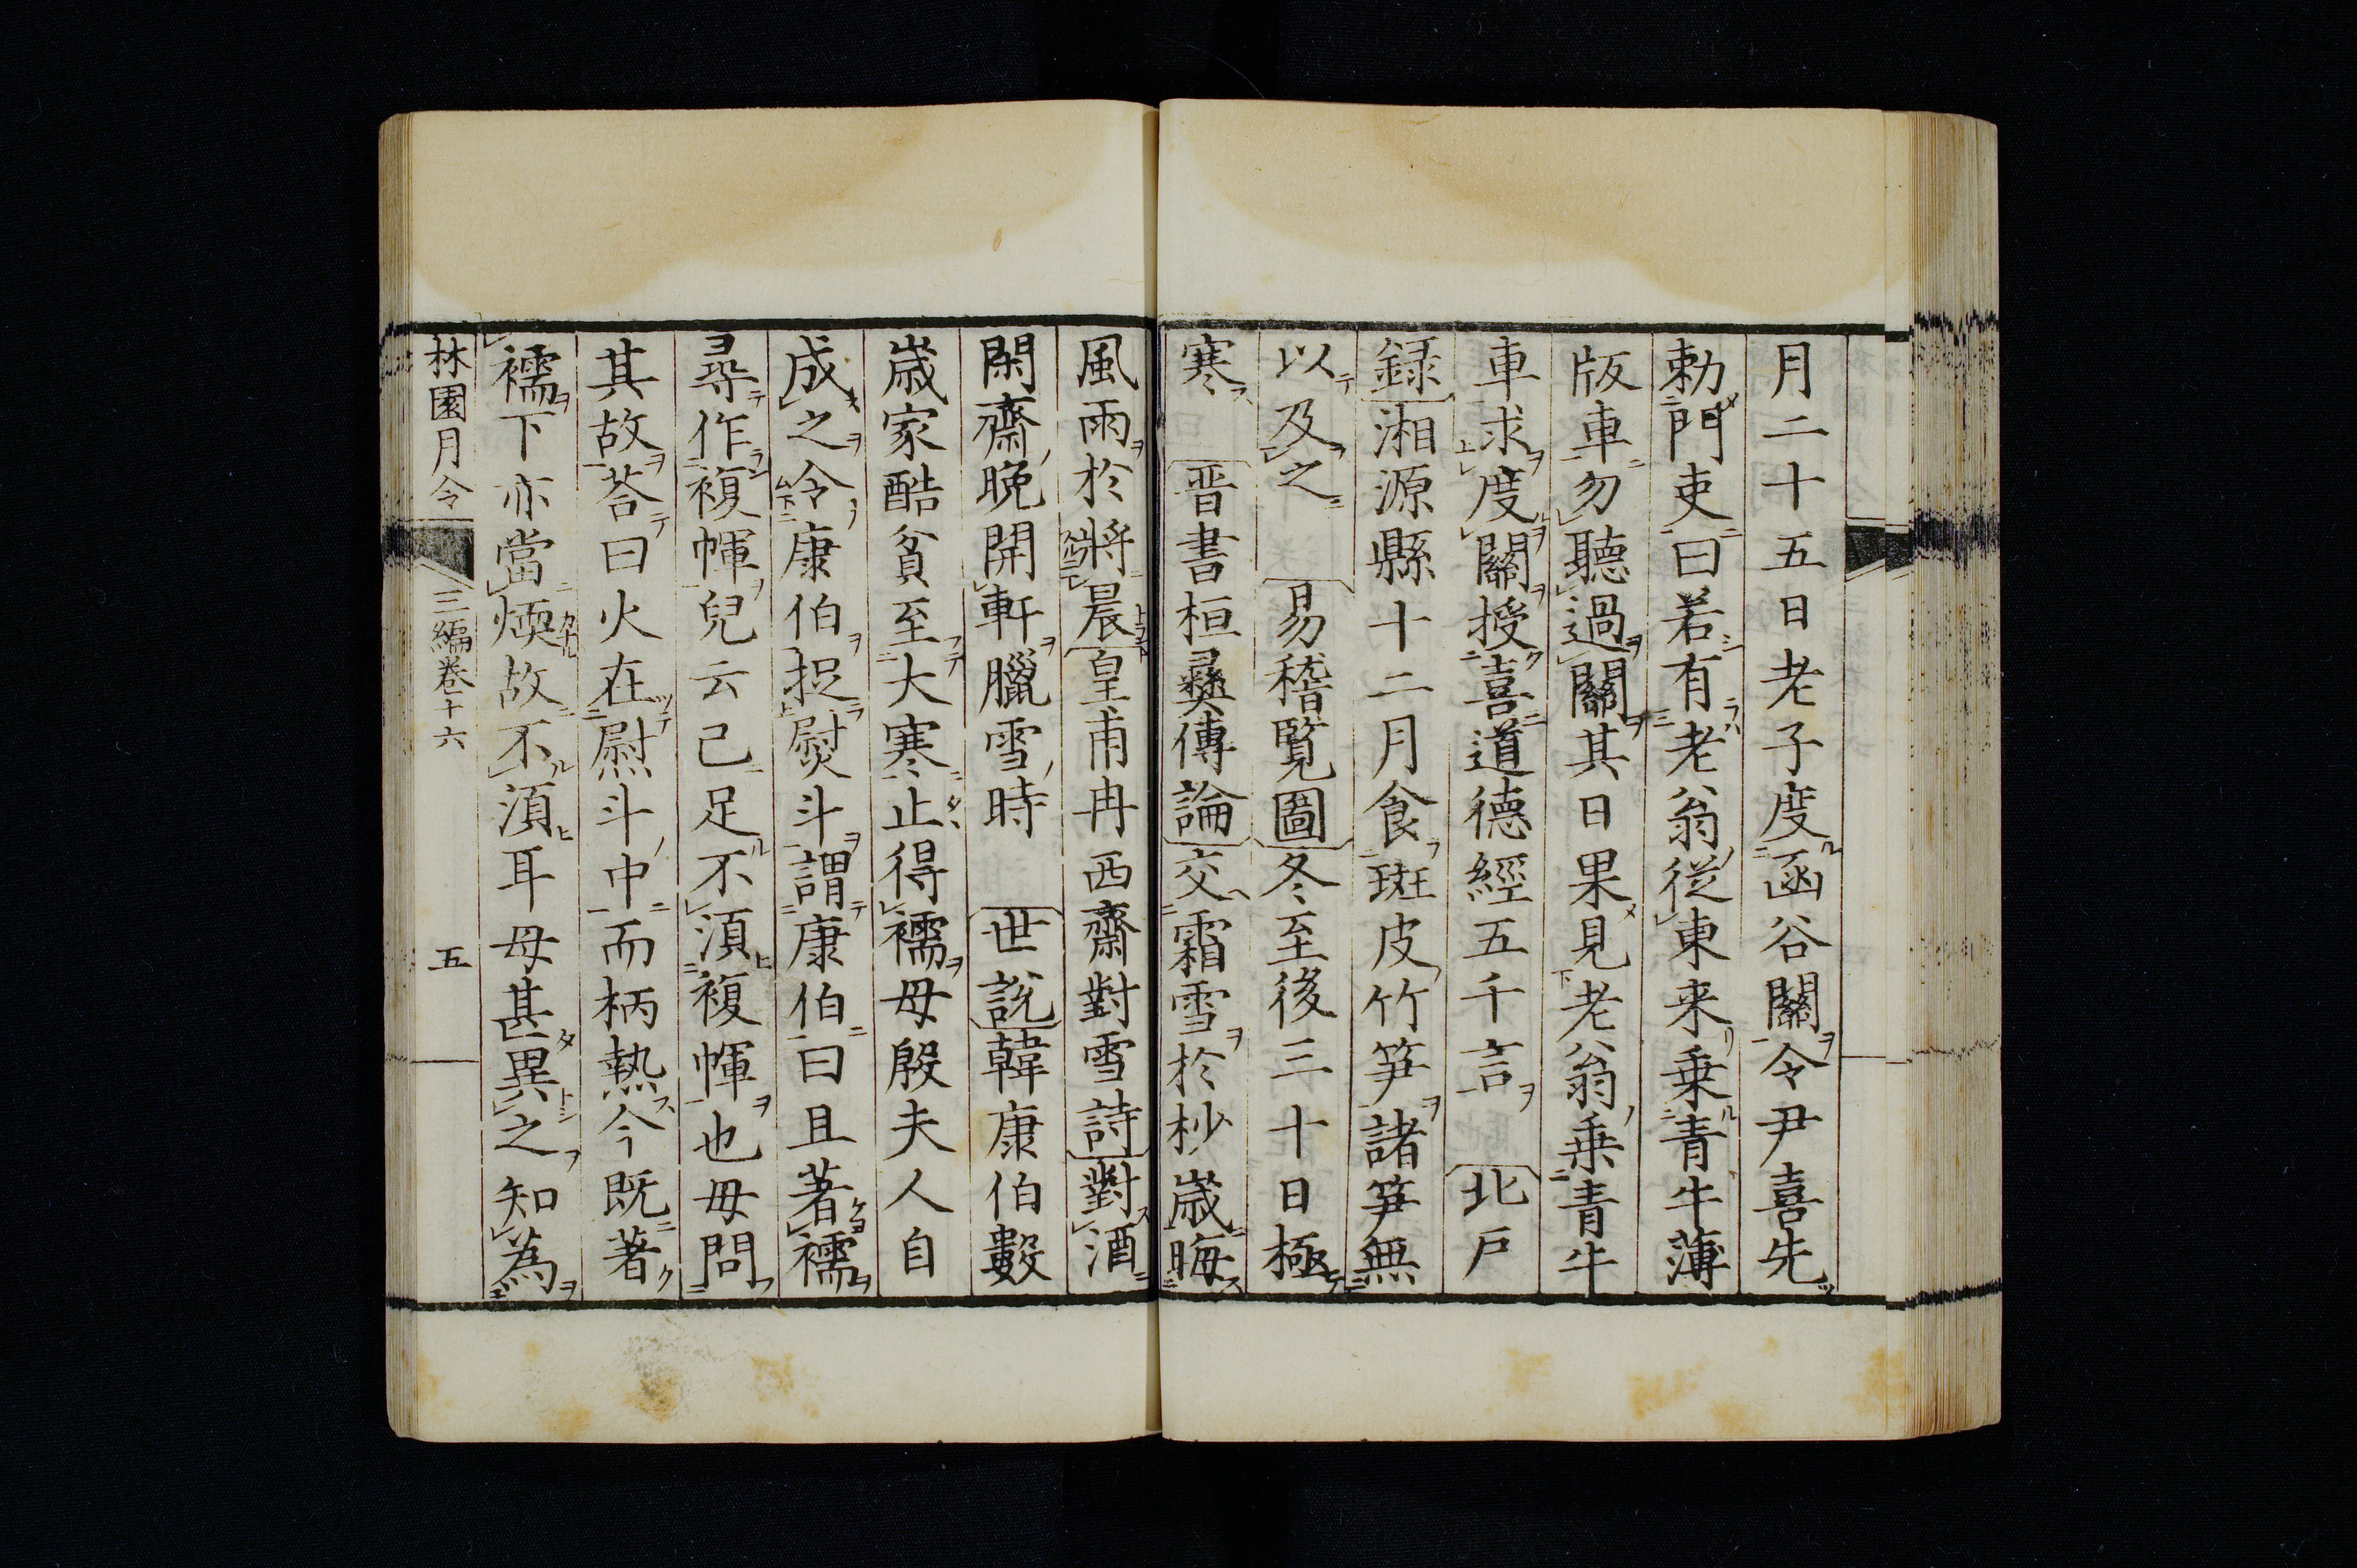 月二十五日老子度函谷關令尹喜先
勅門吏曰若有老翁従東来乗青牛薄
版車勿聽過關其日果見老翁乗青牛
車求度關授喜道德經五千言 北戸
録湘源縣十二月食斑皮竹笋諸笋無
以及之 易稽覧圖冬至後三十日極
寒 晋書桓彝傳論交霜雪於杪歳晦
風雨於將晨皇甫冉西齋對雪詩對酒
閑齋晩開軒臘雪時 世説韓康伯數
歳家酷貧至大寒止得襦母殷夫人自
成之令康伯捉熨斗謂康伯曰且著襦
尋作複㡓兒云已足不湏複㡓也母問
其故荅曰火在熨斗中而柄熱今既著
襦下亦當煗故不湏耳母甚異之知為
林園月令 三編卷十六 五